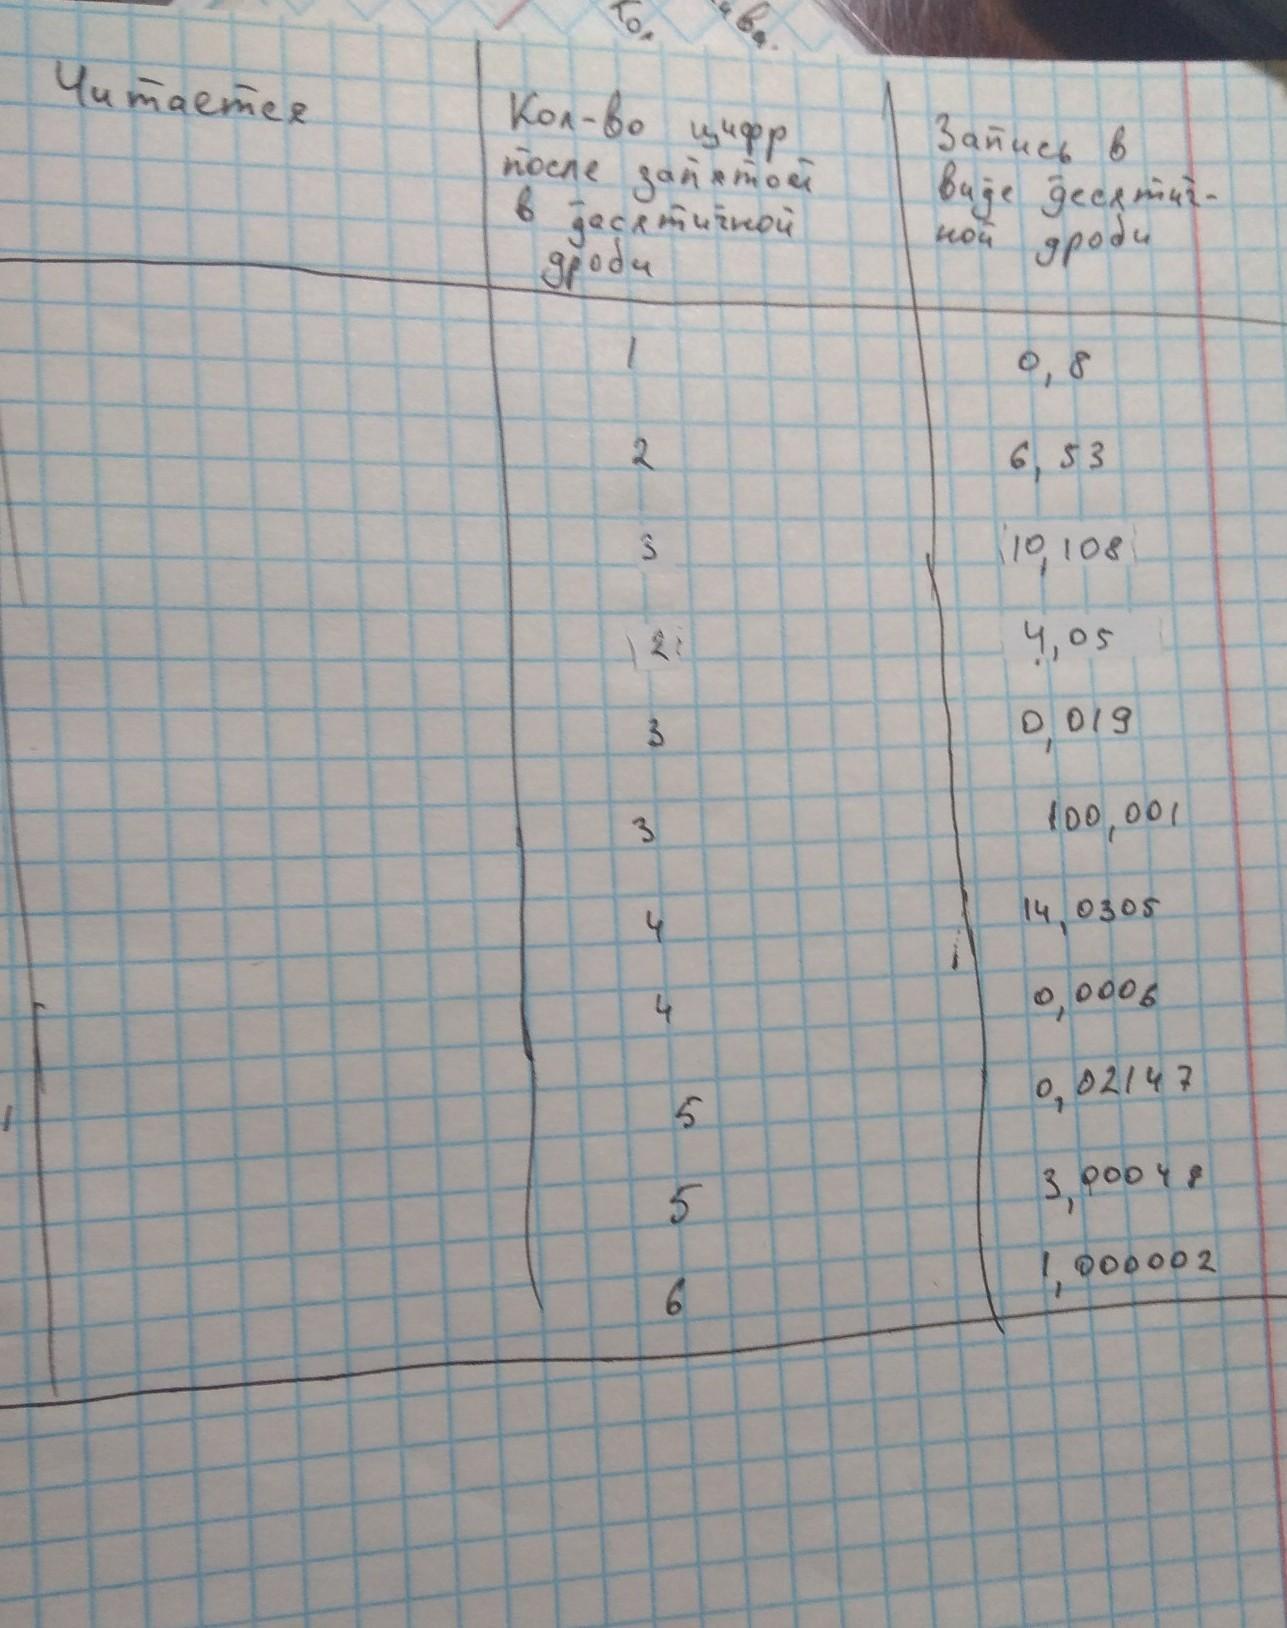 Читается
Кол-во цифр
после запятой
в десятичной
дроби
Запись в
виде десятич-
ной дроби
1 0,8
2 6,53
3 10,108
2 4,05
3 0,019
3 100,001
4 14,0305
4 0,0006
5 0,02147
5 3,00048
6 1,000002